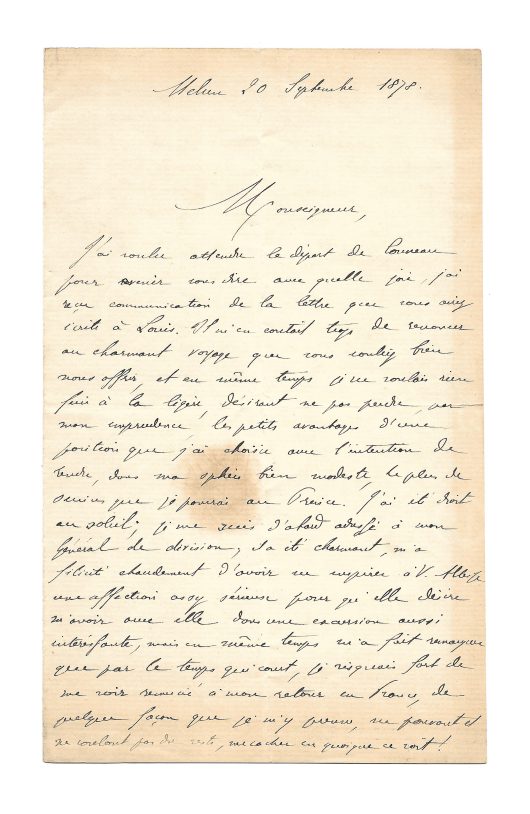 Melun 20 Septembre 1878.
Monseigneur,
J'ai voulu attendre le départ de
pour venir vous dire avec quelle joie, j'ai
reçu communication de la lettre que vous aviez
écrite à Louis. Il m'en coutait trop de renoncer
au charmant voyage que vous vouliez bien
nous offrir, et en même temps je ne voulais rien
faire à la légère, désirant ne pas perdre, par
mon imprudence, les petits avantages d'une
position que j'ai choisie avec l'intention de
rendre, dans ma sphère bien modeste, le plus de
services que je pourrai au Prince. J'ai été droit
au soleil; je me suis d'abord adressé à mon
Général de division; il a été charmant, m'a
félicité chaudement d'avoir su inspirer à V. Altesse
une affection assez sérieuse pour qu'elle désire
m'avoir avec elle dans une excursion aussi
intéressante, mais en même temps m'a fait remarquer
que par le temps qui court, je risquais fort de
me voir à mon retour en France, de
quelque façon que je m'y prenne, ne pouvant et
ne voulant pas du reste, me cacher en quoique ce soit!